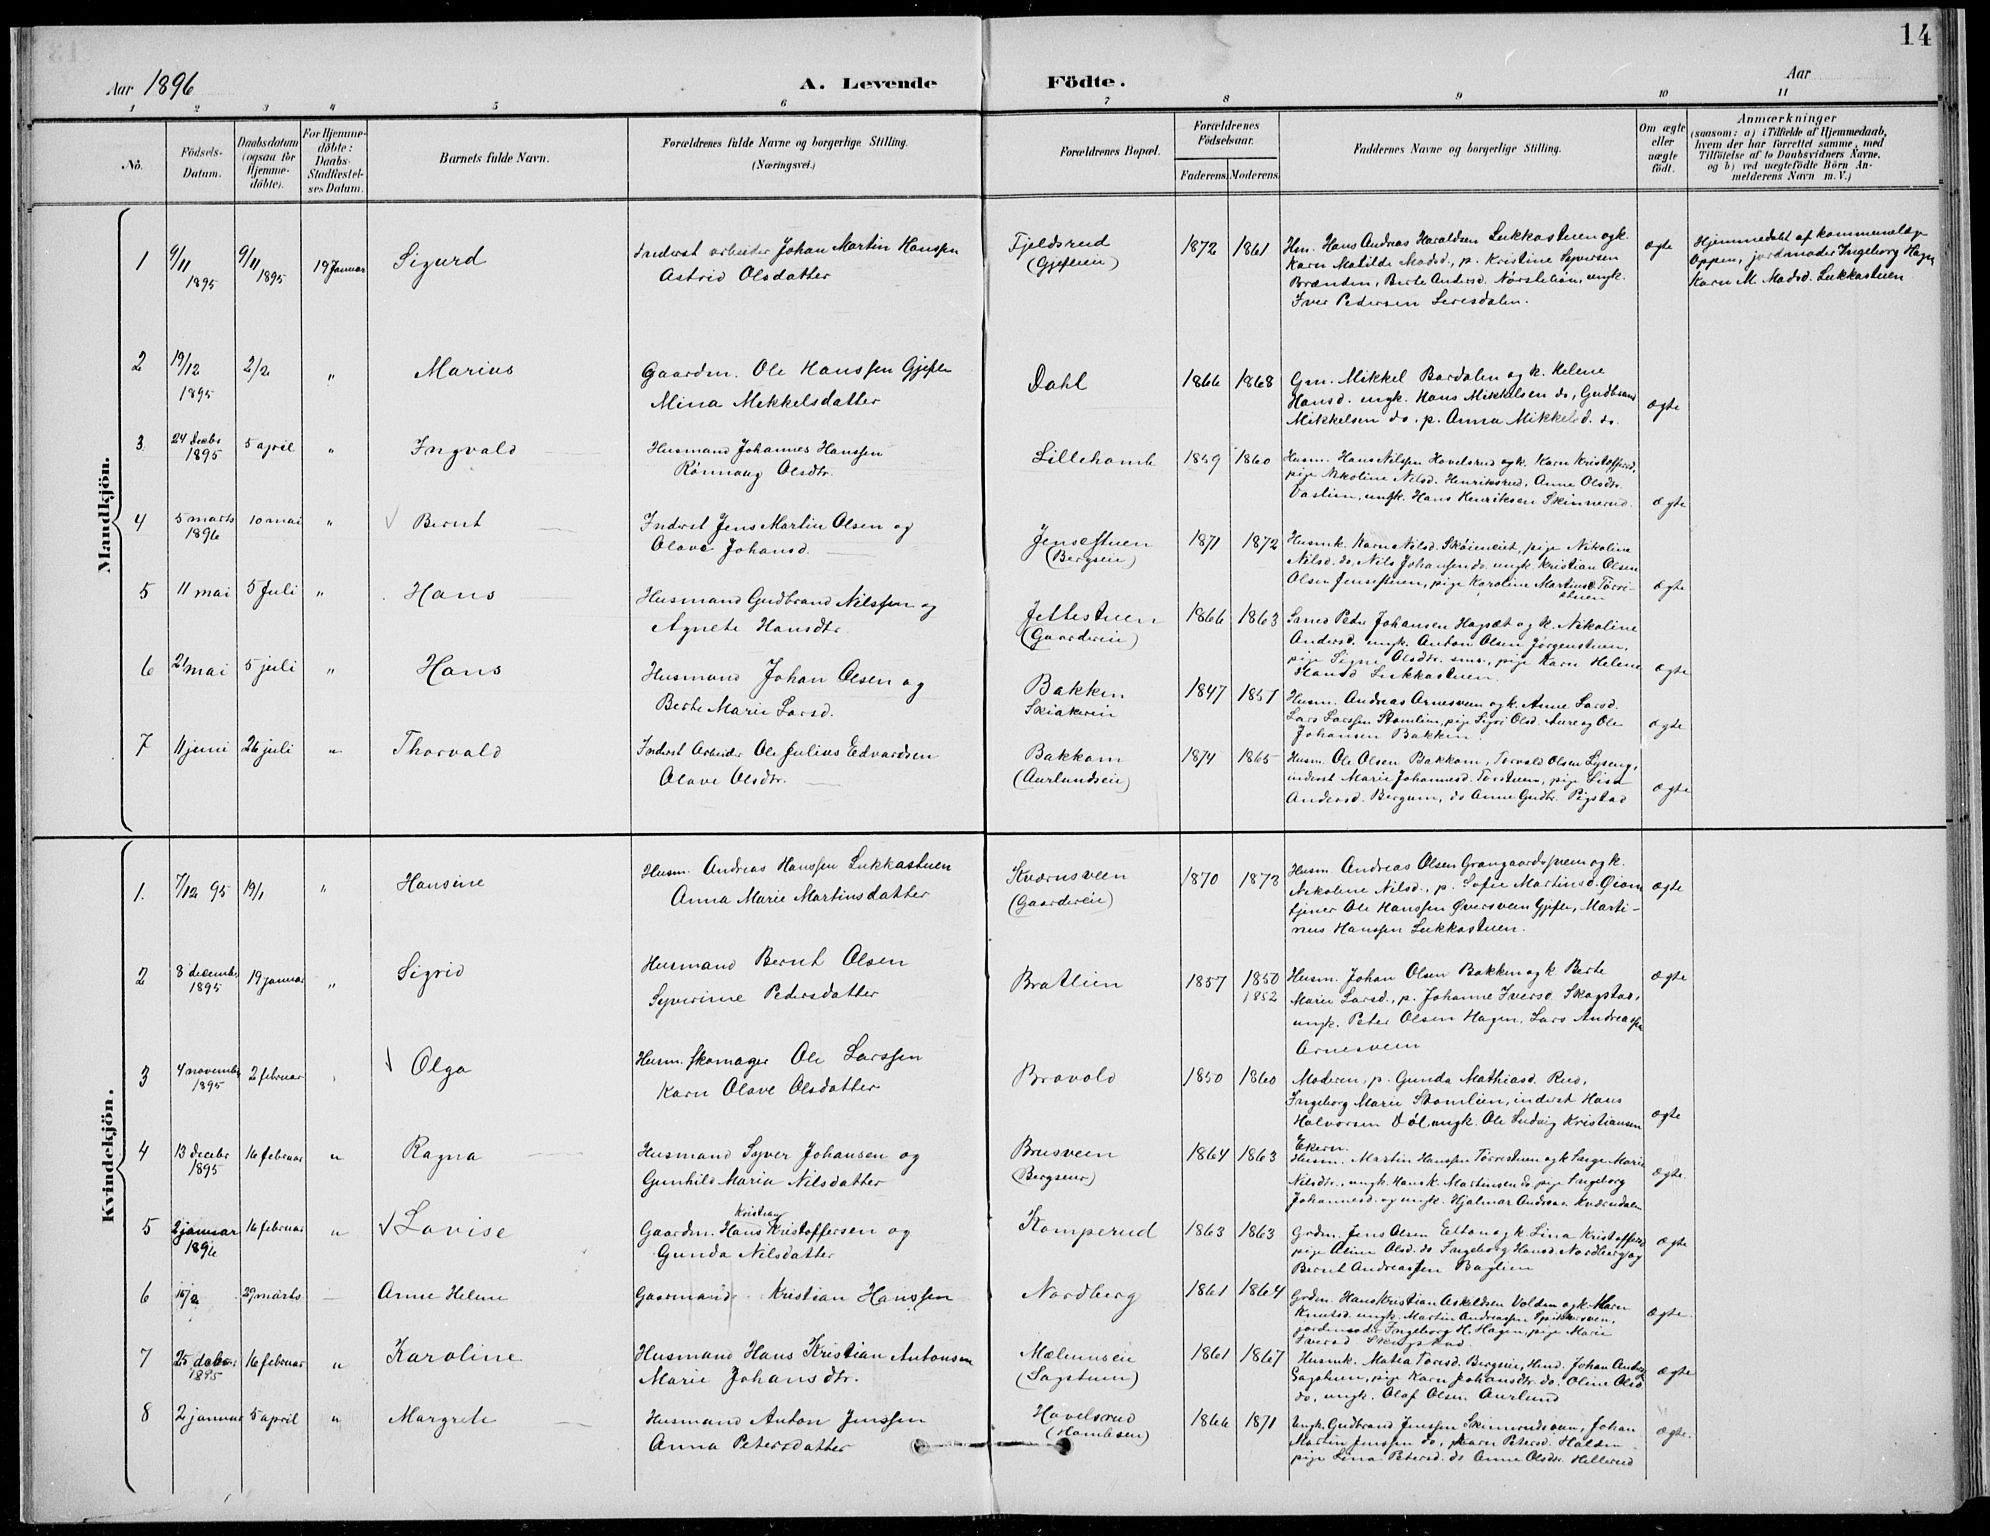 14
Aar 1896
A. Levende Födte.
Aar
1 2 3 4 5 6 7 8 9 10 11
No.
Födsels-Datum.
Daabsdatum (ogsaa for Hjemme-döbte).
For Hjemme-döbte: Daabs-Stadfæstel-ses Datum.
Barnets fulde Navn.
Forældrenes fulde Navne og borgerlige Stilling. (Næringsvei.)
Forældrenes Bopæl.
Forældrenes Födselsaar.
Faderens. Moderens.
Faddernes Navne og borgerlige Stilling.
Om ægte eller uægte födt.
Anmærkninger
(saasom: a) i Tilfælde af Hjemmedaab,
hvem der har forrettet samme, med
Tilföielse af to Daabsvidners Navne,
og b) ved uægtefödte Börn An-
melderens Navn m. V.)
Mandkjön.
1 9/11 1895 9/11 1895 19 Januar Sigurd
Inderst arbeider Johan Martin Hanssen
Astrid Olsdatter
Fjeldsrud
(Gjefleeie)
1872 1861
Hm. Hans Andreas Haraldsen Lukkastuen og k.
Karn Matilde Madsd., p. Kristine Syversen
Brænden, Berte Andersd. ungk.
Iver Pedersen
ægte
Hjemmedøbt af kommunelæge
Oppen, jordmoder Ingeborg Hagen
Karn M. Madsd. Lukkastuen
2 19/12 1895 2/2 " Marius
Gaardm. Ole Hanssen Gjefle
Mina Mikkelsdatter
Dahl
1866 1868
Gm. Mikkel Bardalen og k. Helene
Hansd. ungk. Hans Mikkelsen do, Gudbrand
Mikkelsen do. p. Anna Mikkelsd. do.
ægte
3. 24 decbr 1895 5 april " Ingvald
Husmand Johannes Hanssen
Rønnaug Olsdtr.
Lillehamle
1859 1860
Husm. Hans Nilssen Hovelsrud og k. Karn Kristoffersd,
pige Nikoline Nilsd. Henriksrud, Anne Olsdtr.
ungk. Hans Henriksen Skinnerud.
ægte
4 5 marts 1896 10 mai " Bernt
Inderst Jens Martin Olsen og
Olave Johansd.
Jensestuen
(Bergseie)
1871 1872
Husmk. Karn Nilsd. Skøieneiet, pige Nikoline
Nilsd. do, Nils Johansen do. ungk. Kristian Olsen
Olsen Jensestuen, pige Karoline Martinsd. Torri-
stuen
ægte
5 11 mai 5 Juli " Hans
Husmand Gudbrand Nilssen og
Agnete Hansdtr.
Jettestuen
(Gaardeeie)
1866 1863
Peder Johansen og k. Nikoline
Andersd. ungk. Anton Olsen Jørgenstuen,
pige Signe Olsdtr. pige Karn Helene
Hansd Lukkastuen.
ægte
6 21 mai 5 juli " Hans
Husmand Johan Olsen og
Berte Marie Larsd.
Bakken
Skiakereie
1847 1851
Husm. Andreas Arnesveen og k. Anne Larsd.
Lars Larssen Stomlien, pige Sigri Olsd. og Ole
Johansen Bakken.
ægte
7 11 juni 26 juli " Thorvald
Inderst Arbeider Ole Julius Edvardsen
Olave Olsdtr.
Bakkom
(Aurlundseie)
1874 1865
Husm. Ole Olsen Bakkom, Torvald Olsen Lyseng,
inderst Marie Johannesd. pige Lisa
Andersd. Bergum, do Anne Gudbr. Pigstad
ægte
Kvindekjön.
1. 7/12 95 19/1 " Hansine
Husm. Andreas Hanssen Lukkastuen
Anna Marie Martinsdatter
Kværnsveen
(Gaardeeie)
1870 1873
Husm. Andreas Olsen Grangaardssveen og k.
Nikoline Nilsd., p. Sofie Martinsd. Øiom
tjener Ole Hanssen Øversveen Gjefle, Marti-
nus Hanssen Lukkastuen.
ægte
2 8 december 1895 19 januar " Sigrid
Husmand Bernt Olsen
Syverine Pedersdatter
Bratlien
1857 1850
1852
Husm. Johan Olsen Bakken og k. Berte
Marie Larsd., p. Johanne Iversd. Skogstad,
ungk. Peter Olsen Hagen. Lars Andreassen
Arnesveen
ægte
3 4 november 1895 2 februar Olga
Husm. skomager Ole Larssen
Karn Olave Olsdatter
Bravold
1850 1860
Moderen, p. Gunda Mathiasd. Rud,
Ingeborg Marie Stomlien, inderst Hans
Halvorsen Døl, ungk. Ole Ludvig Kristiansen
Ekern.
ægte
4 13 decbr 1895 16 februar " Ragna
Husmand Syver Johansen og
Gunhild Maria Nilsdatter
Brusveen
(Bergseie)
1864 1863
Husm. Martin Hanssen Torristuen og k Marie
Nilsdtr., ungk. Hans K. Martinsen do. pige Ingeborg
Johannesd. og ungk. Hjalmar Andreas Kværndalen
ægte.
5 2 januar 1896 16 februar " Lovise
Kristian
Gaardm. Hans Kristoffersen og
Gunda Nilsdatter
Kamperud
1863 1863
Grdm. Jens Olsen Elton og k. Lina Kristoffersd.
pige Oline Olsd. do Ingeborg Hansd. Nordberg og
Bernt Andreassen Baglien
ægte
6 15/2 29 marts — Anne Helene
Gaarmand Kristian Hanssen
Nordberg
1861 1864
Grdm. Hans Kristian Askildsen Volden og k. Karn
Knutsd. ungk. Martin Andreassen
jordemoder Ingeborg H. Hagen, pige Marie
Iversd. Skogstad.
ægte.
7 25 1895 16 februar " Karoline
Husmand Hans Kristian Antonsen
Marie Johansdtr.
Mælumseie
(Sagstuen)
1861 1867
Husmk. Matea Toresd. Bergseie, Hmd. Johan Anders
Sagstuen, pige Karn Johansdtr. do. Oline Olsd
do, ungk. Olaf Olsen Aurlund
ægte
8 2 januar 5 april " Margrete
Husmand Anton Jenssen
Anna Petersdatter
Hovelsrud
(Hamleeie)
1866 1871
Ungk. Gudbrand Jenssen Skinnerudsveen, Johan
Martin Jenssen do, Karn Petersd. Halden
pige Lina Petersd. do Anne Olsdtr. Hellerud
ægte.